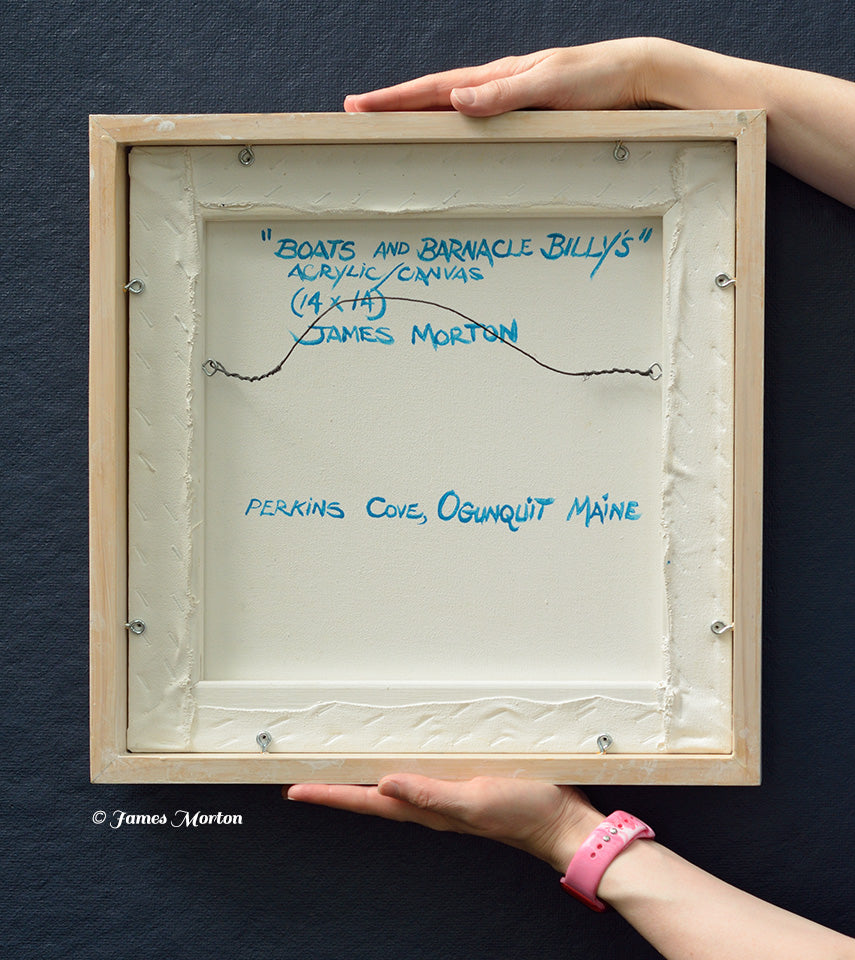 "BOATS AND BARNACLE BILLY'S"
ACRYLIC/CANVAS
(14 x 14)
JAMES MORTON
PERKINS COVE, OGUNQUIT MAINE
© James Morton